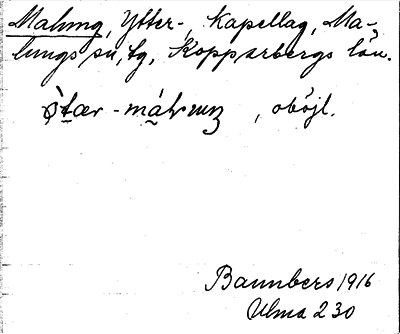 Malung, Ytter-, kapellag, Ma-
lungs sn, tg, Kopparbergs län.
, oböjl.
Bannbers 1916
Ulma 230